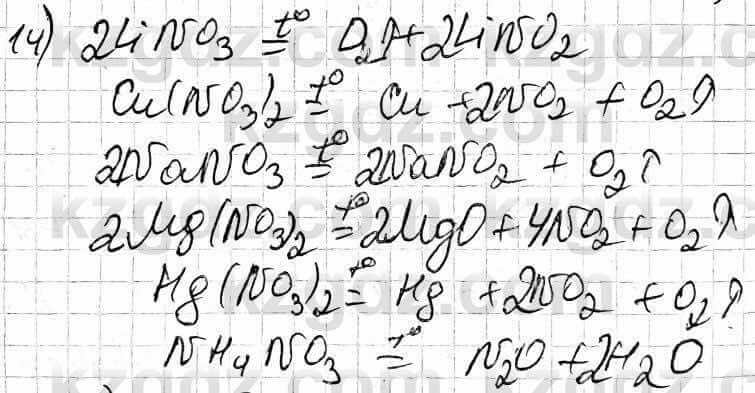 14) 2LiNO3 t°= O2↑+2LiNO2
Cu(NO3)2 t°= Cu +2NO2 + O2↑
2NaNO3 t°= 2NaNO2 + O2↑
2Mg(NO3)2 t°= 2MgO+4NO2+O2↑
Hg(NO3)2 t°= Hg +2NO2 + O2↑
NH4NO3 t°= N2O+2H2O